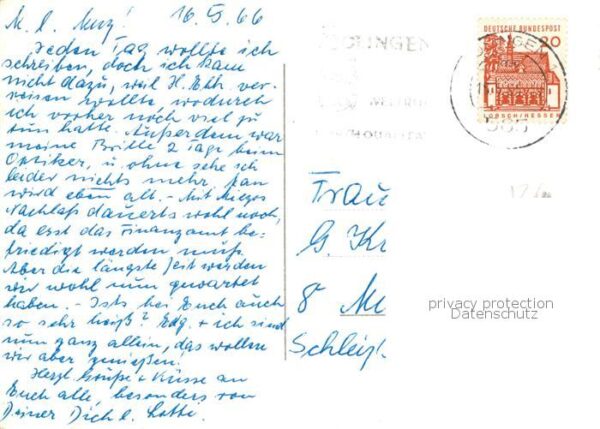 M. l. Muzl! 16.5.66
Jeden Tag wollte ich
schreiben, doch ich kam
nicht dazu, weil H. Eth. ver-
reisen wollte, wodurch
ich vorher noch viel zu
tun hatte. Außerdem war
meine Brille 2 Tage beim
Optiker, u. ohne sehe ich
leider nichts mehr. Man
wird eben alt. - Mit
Nachlaß dauerts wohl noch,
da erst das Finanzamt be-
friedigt werden muß.
Aber die längste Zeit werden
wir wohl nun gewartet
haben. - Ists bei Euch auch
so sehr heiß? Edg. + ich sind
nun ganz allein, das wollen
wir aber genießen!
Herzl. Grüße + Küsse an
Euch alle, besonders von
Deiner Dich l. Lotte.
SOLINGEN
565
DEUTSCHE BUNDESPOST
20
LORSCH/HESSEN
Frau
G. Kr
8 Mü
Schleiß.
privacy protection
Datenschutz